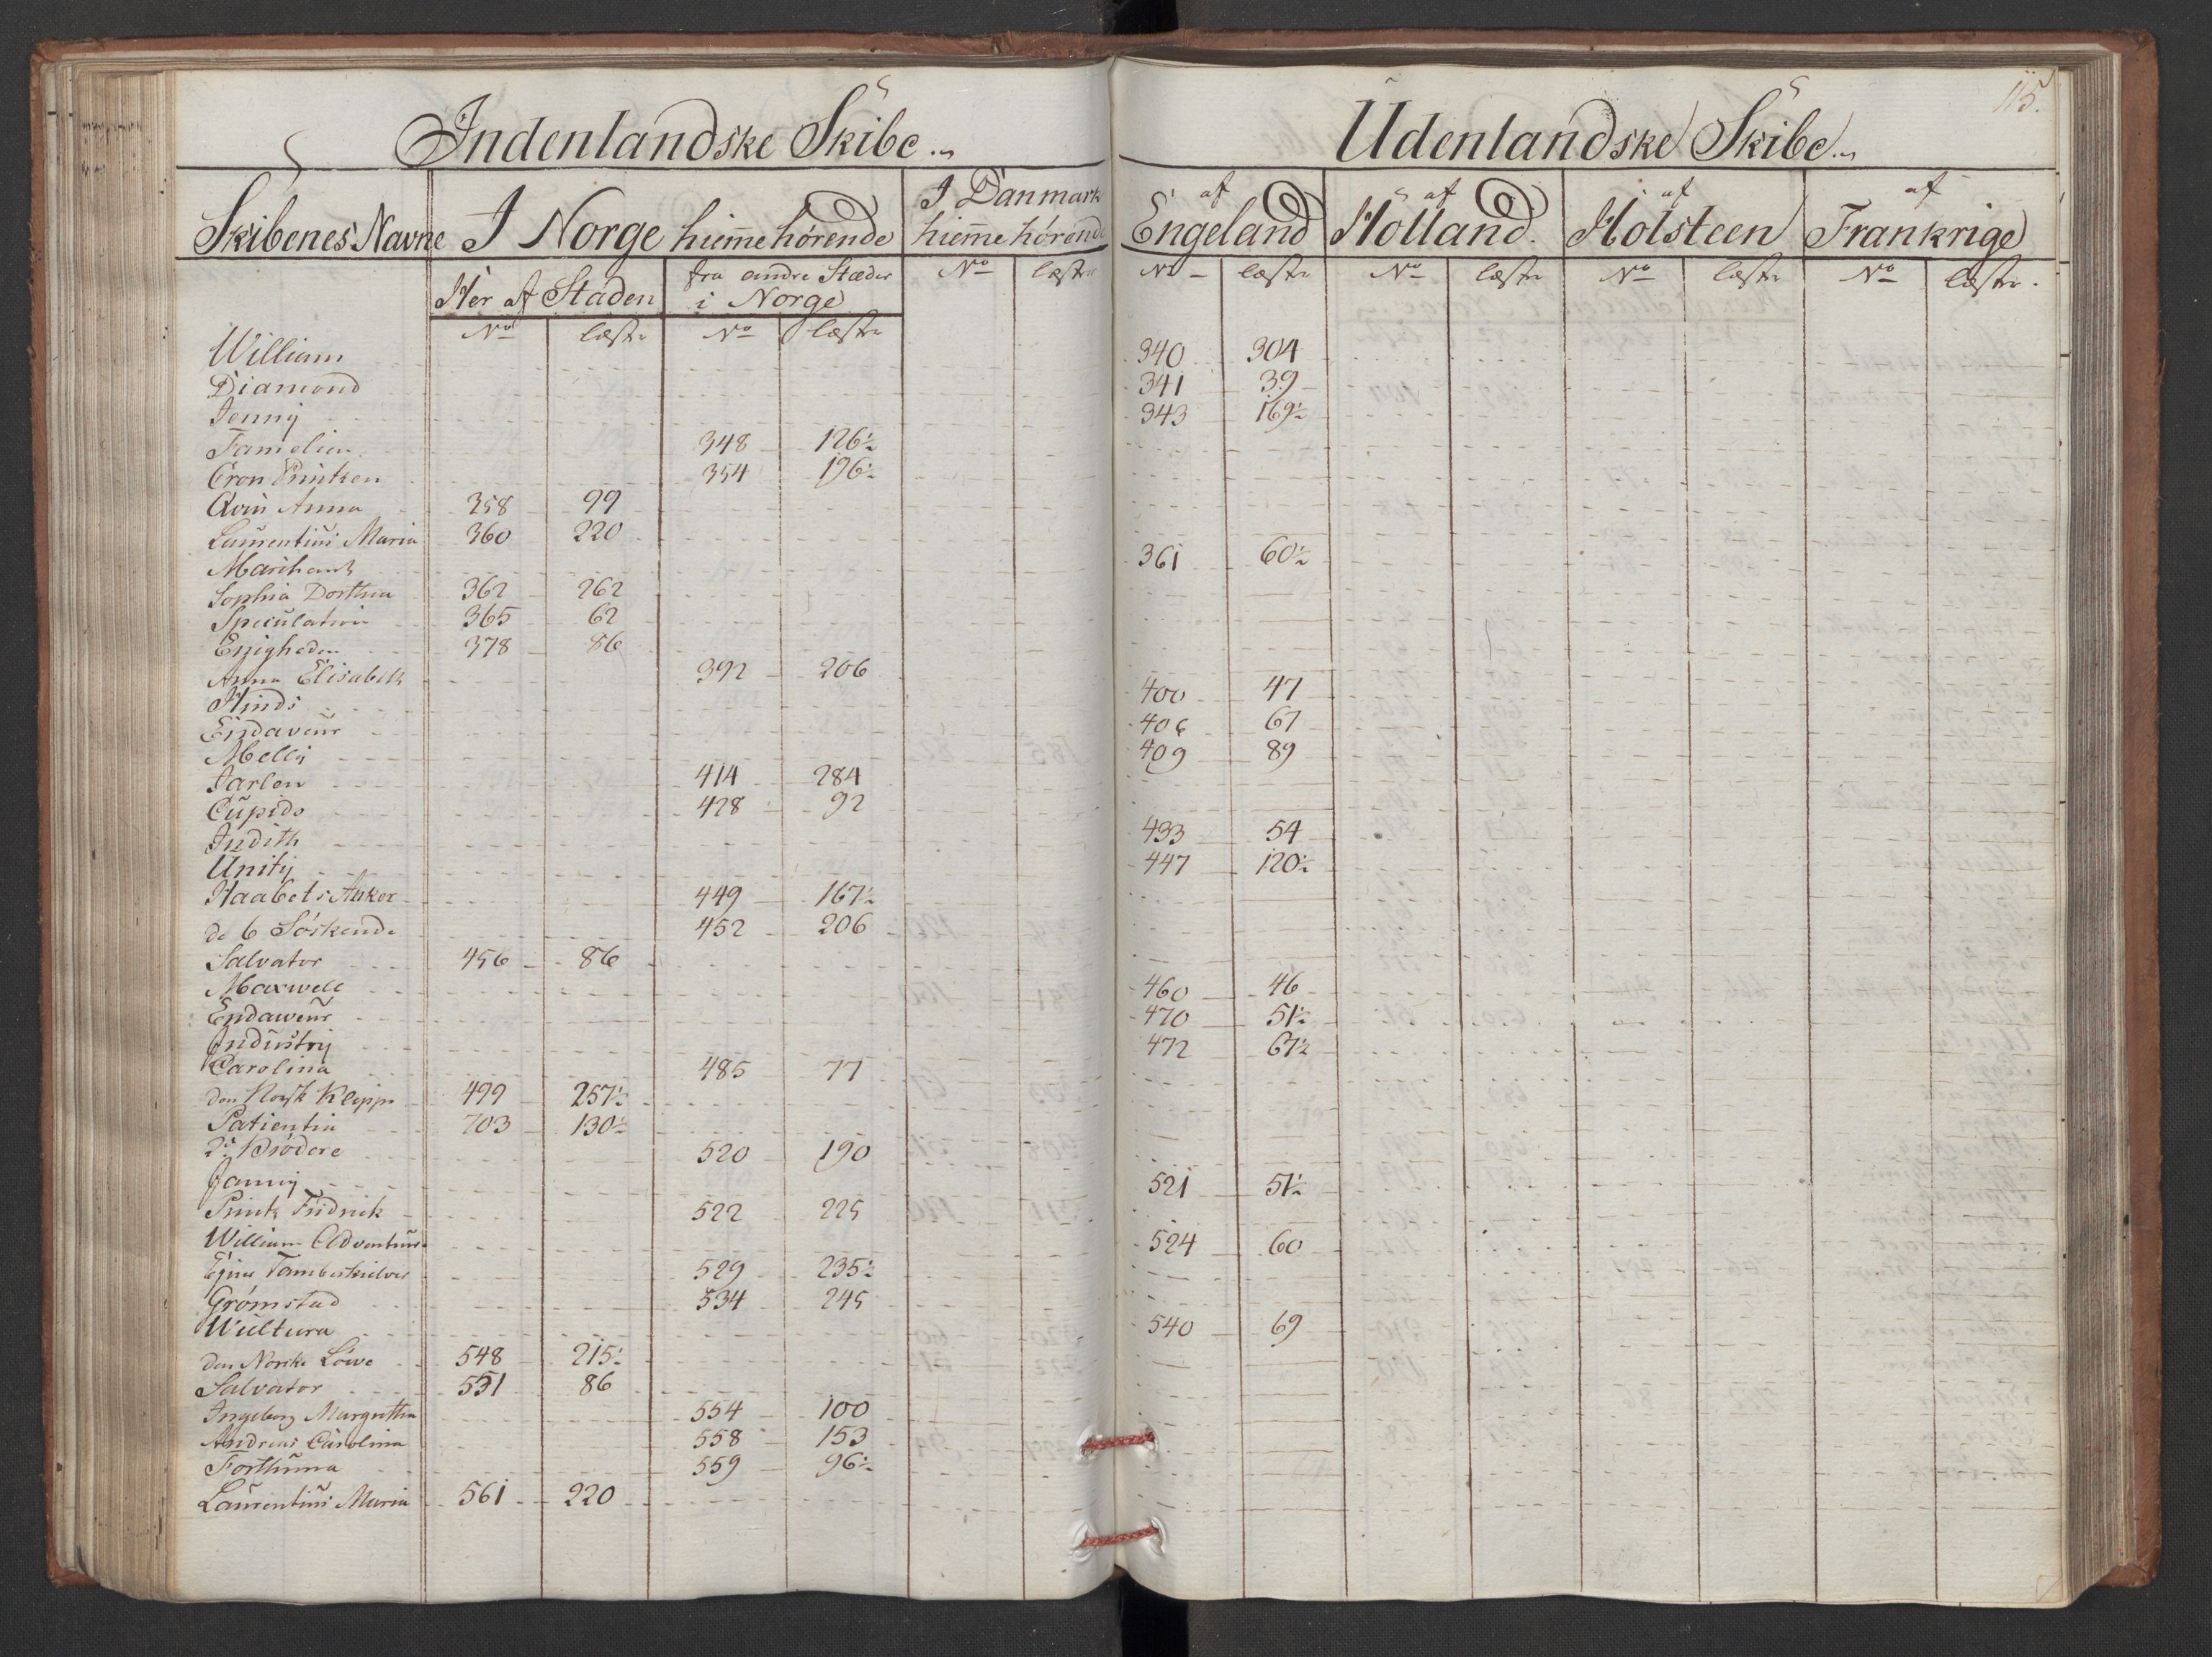 115.
Indenlandske Skibe
Udenlandske Skibe
Skibenes Navne
I Norge hiem̄ehørende
I Danmark hiem̄ehørende
af Engeland
af Holland.
af Holsteen
af Frankrige
Her af Staden
fra andre Stæder i Norge
No læster No læster No læster No læster No læster No læster No læster
William 340 304
Diamond 341 39
Jenny 343 169½
Familien 348 126½
Cron Printzen 354 196½
Anna 358 99
Laurentius Maria 360 220
361 60½
Sophia Dorthea 362 262
Speculation 365 62
Enigheden 378 86
Anna Elisabeth 392 206
Hinds 400 47
Endaveur 406 67
Melly 409 89
Jarlen 414 284
Cupido 428 92
Judith 433 54
Unity 447 120½
Haabets Anker 449 167½
de 6 Søskende 452 206
Salvator 456 86
Maxwell 460 46
Endaweur 470 51½
Industry 472 67½
Carolina 485 77
den Norske Klippe 499 257½
Patientia 703 130½
2de Brødere 520 190
Janny 521 51½
Printz Fridrick 522 225
William Adventure 524 60
Ejnar Tambeskielver 529 235½
Grømstad 534 245
Wultura 540 69
den Norske Løwe 548 215½
Salvator 551 86
Ingeborg Margretha 554 100
Andreas Carolina 558 153
Forthuna 559 96½
Laurentius Maria 561 220